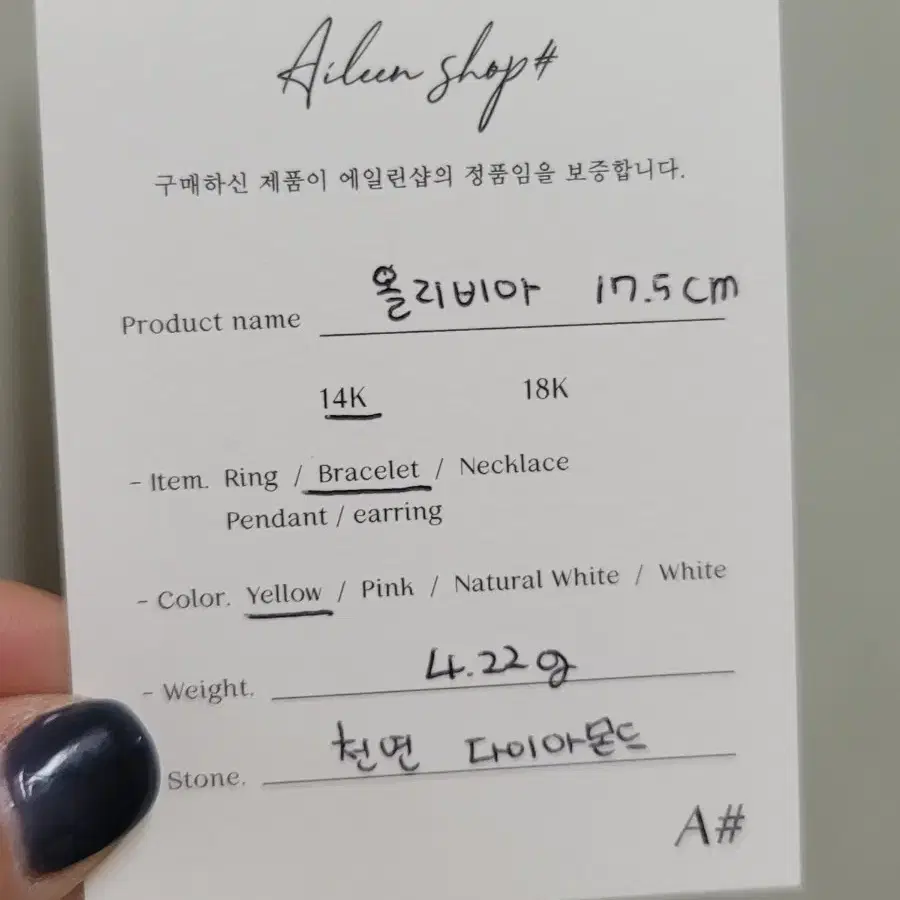 Aileen shop#
구매하신 제품이 에일린샵의 정품임을 보증합니다.
Product name 올리비아 17.5cm
14K 18K
- Item. Ring / Bracelet / Necklace
Pendant / earring
- Color. Yellow / Pink / Natural White / White
- Weight. 4.22g
Stone. 천연 다이아몬드
A#